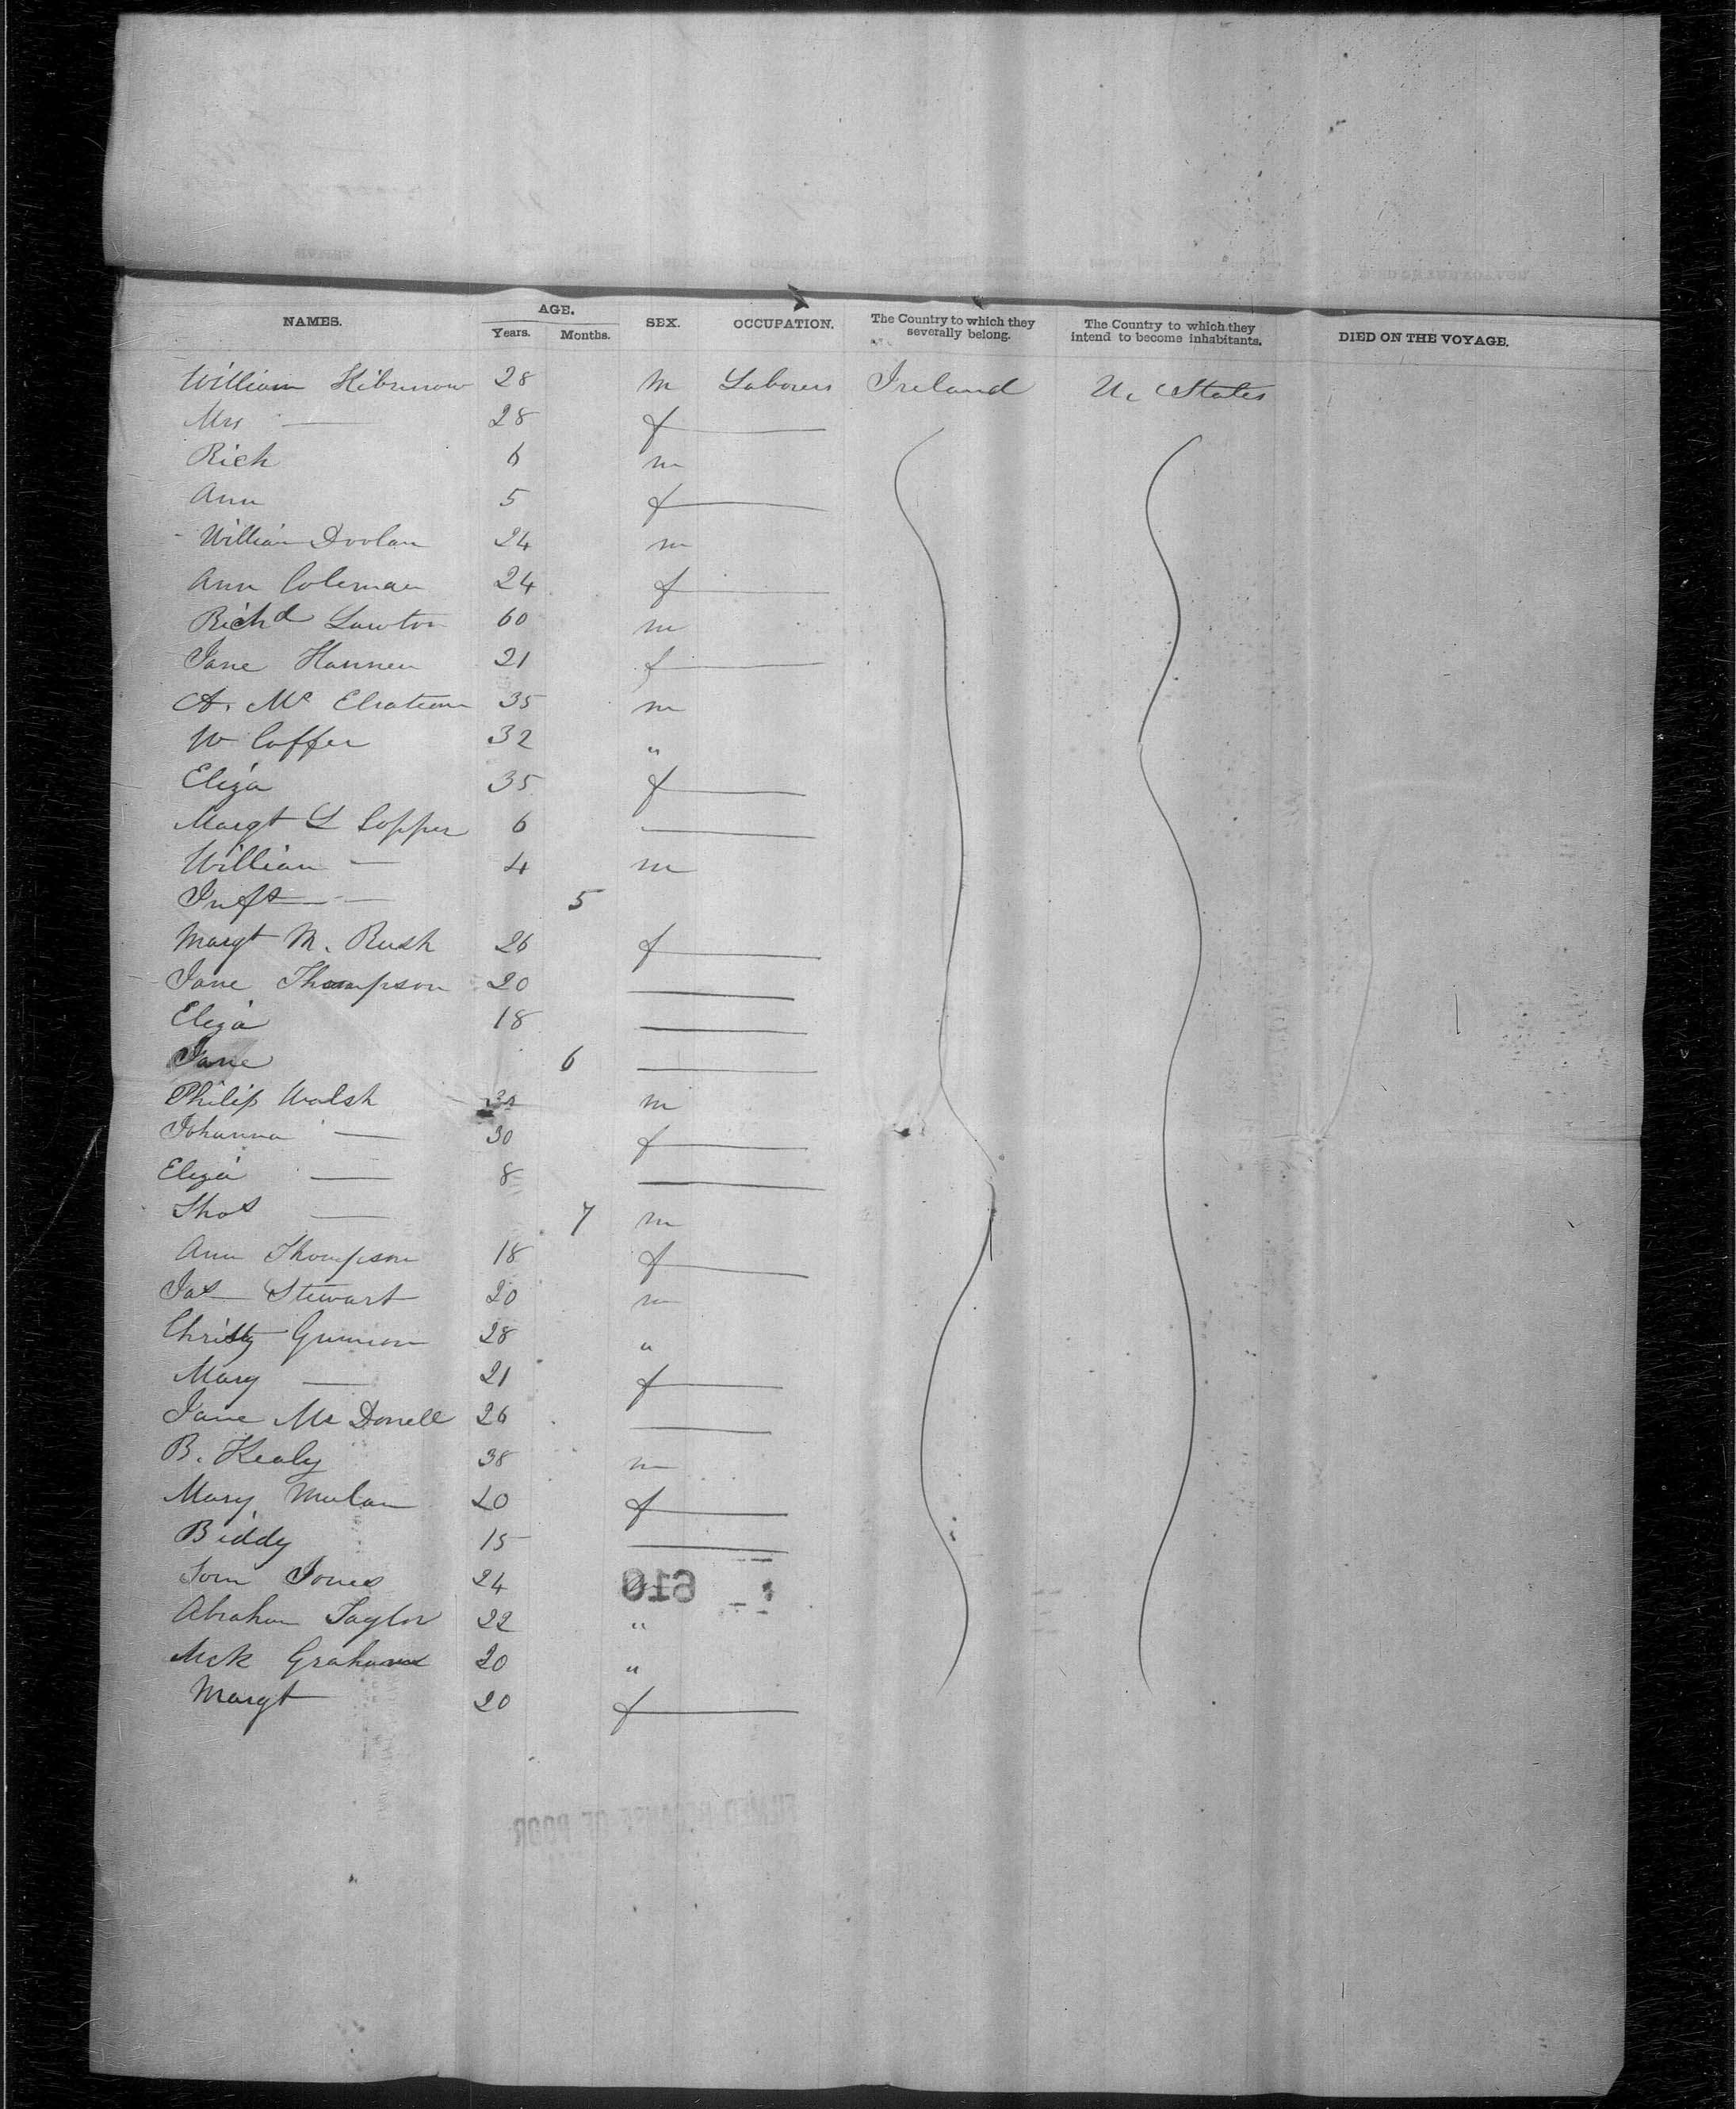 NAMES. AGE. Years. Months. SEX. OCCUPATION. The Country to which they severally belong. The Country to which they intend to become inhabitants. DIED ON THE VOYAGE.
William 28 m Laborers Ireland U. States
Mrs — 28 f —
Rich 6 m
Ann 5 f —
William Doolan 24 m
Ann Coleman 24 f —
Richd Lawton 60 m
Jane Hannen 21 f —
A. Mc 35 m
W Coffer 32 "
Eliza 35 f —
Margt L Copper 6 —
William — 4 m
Inft — 5
Margt M. Rush 26 f —
Jane Thompson 20 —
Eliza 18 —
Jane 6 —
Philip Walsh m
Johanna — 30 f —
Eliza — 8 —
Thos — 7 m
Ann Thompson 18 f —
Jas Stewart 20 m
Christy 28 "
Mary — 21 f —
Jane Mc Donell 26 —
B. Kealy 38 m
Mary Mulan 20 f —
Biddy 15 —
Tom Jones 24
610
Abraham Taylor 22 "
Mck Graham 20 "
Margt 20 f —
FILMED BECAUSE OF POOR